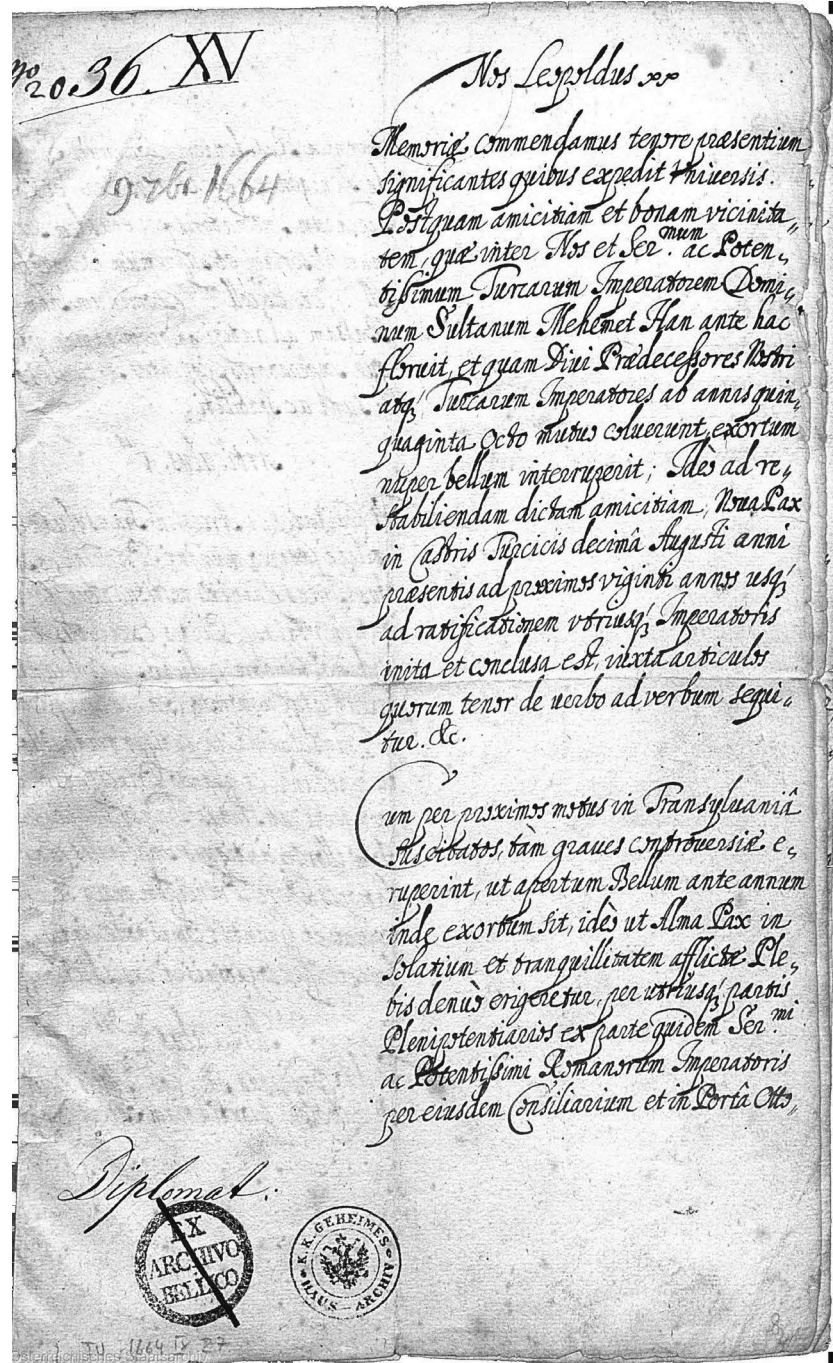 No
20 36. XV
9. 7br. 1664
Nos Leopoldus
Memoriæ commendamus tenore præsentium
significantes quibus expedit Vniversis.
Postquam amicitiam et bonam vicinita„
tem, quæ inter Nos et Ser.mum ac Poten„
tissimum Turcarum Imperatorem Domi„
num Sultanum Mehemet Han ante hac
floruit, et quam Divi Prædecessores Nostri
atq́ Turcarum Imperatores ab annis quin„
quaginta Octo mutuo coluerunt, exortum
nuper bellum interruperit; Ideo ad re„
stabiliendam dictam amicitiam, Nova Pax
in Castris Turcicis decimâ Augusti anni
præsentis ad proximos viginti annos usq́
ad ratificationem vtriusq́ Imperatoris
inita et conclusa est, iuxta articulos
quorum tenor de uerbo ad verbum sequi„
tur. &c.
Cum per proximos motus in Transyluaniâ
suscitatos, tàm graues controuersiæ e„
ruperint, ut apertum Bellum ante annum
inde exortum sit, ideò ut Alma Pax in
solatium et tranquillitatem afflictæ Ple„
bis denuò erigeretur, per utriusq́ partis
Plenipotentiarios ex parte quidem Ser.mi
ac Potentissimi Romanorum Imperatoris
per eiusdem Consiliarium et in Portâ Otto„
Diplomat.
EX
ARCHIVO
BELLICO
K. K. GEHEIMES
HAUS - ARCHIV
1664 IX 27
Österreichisches Staatsarchiv